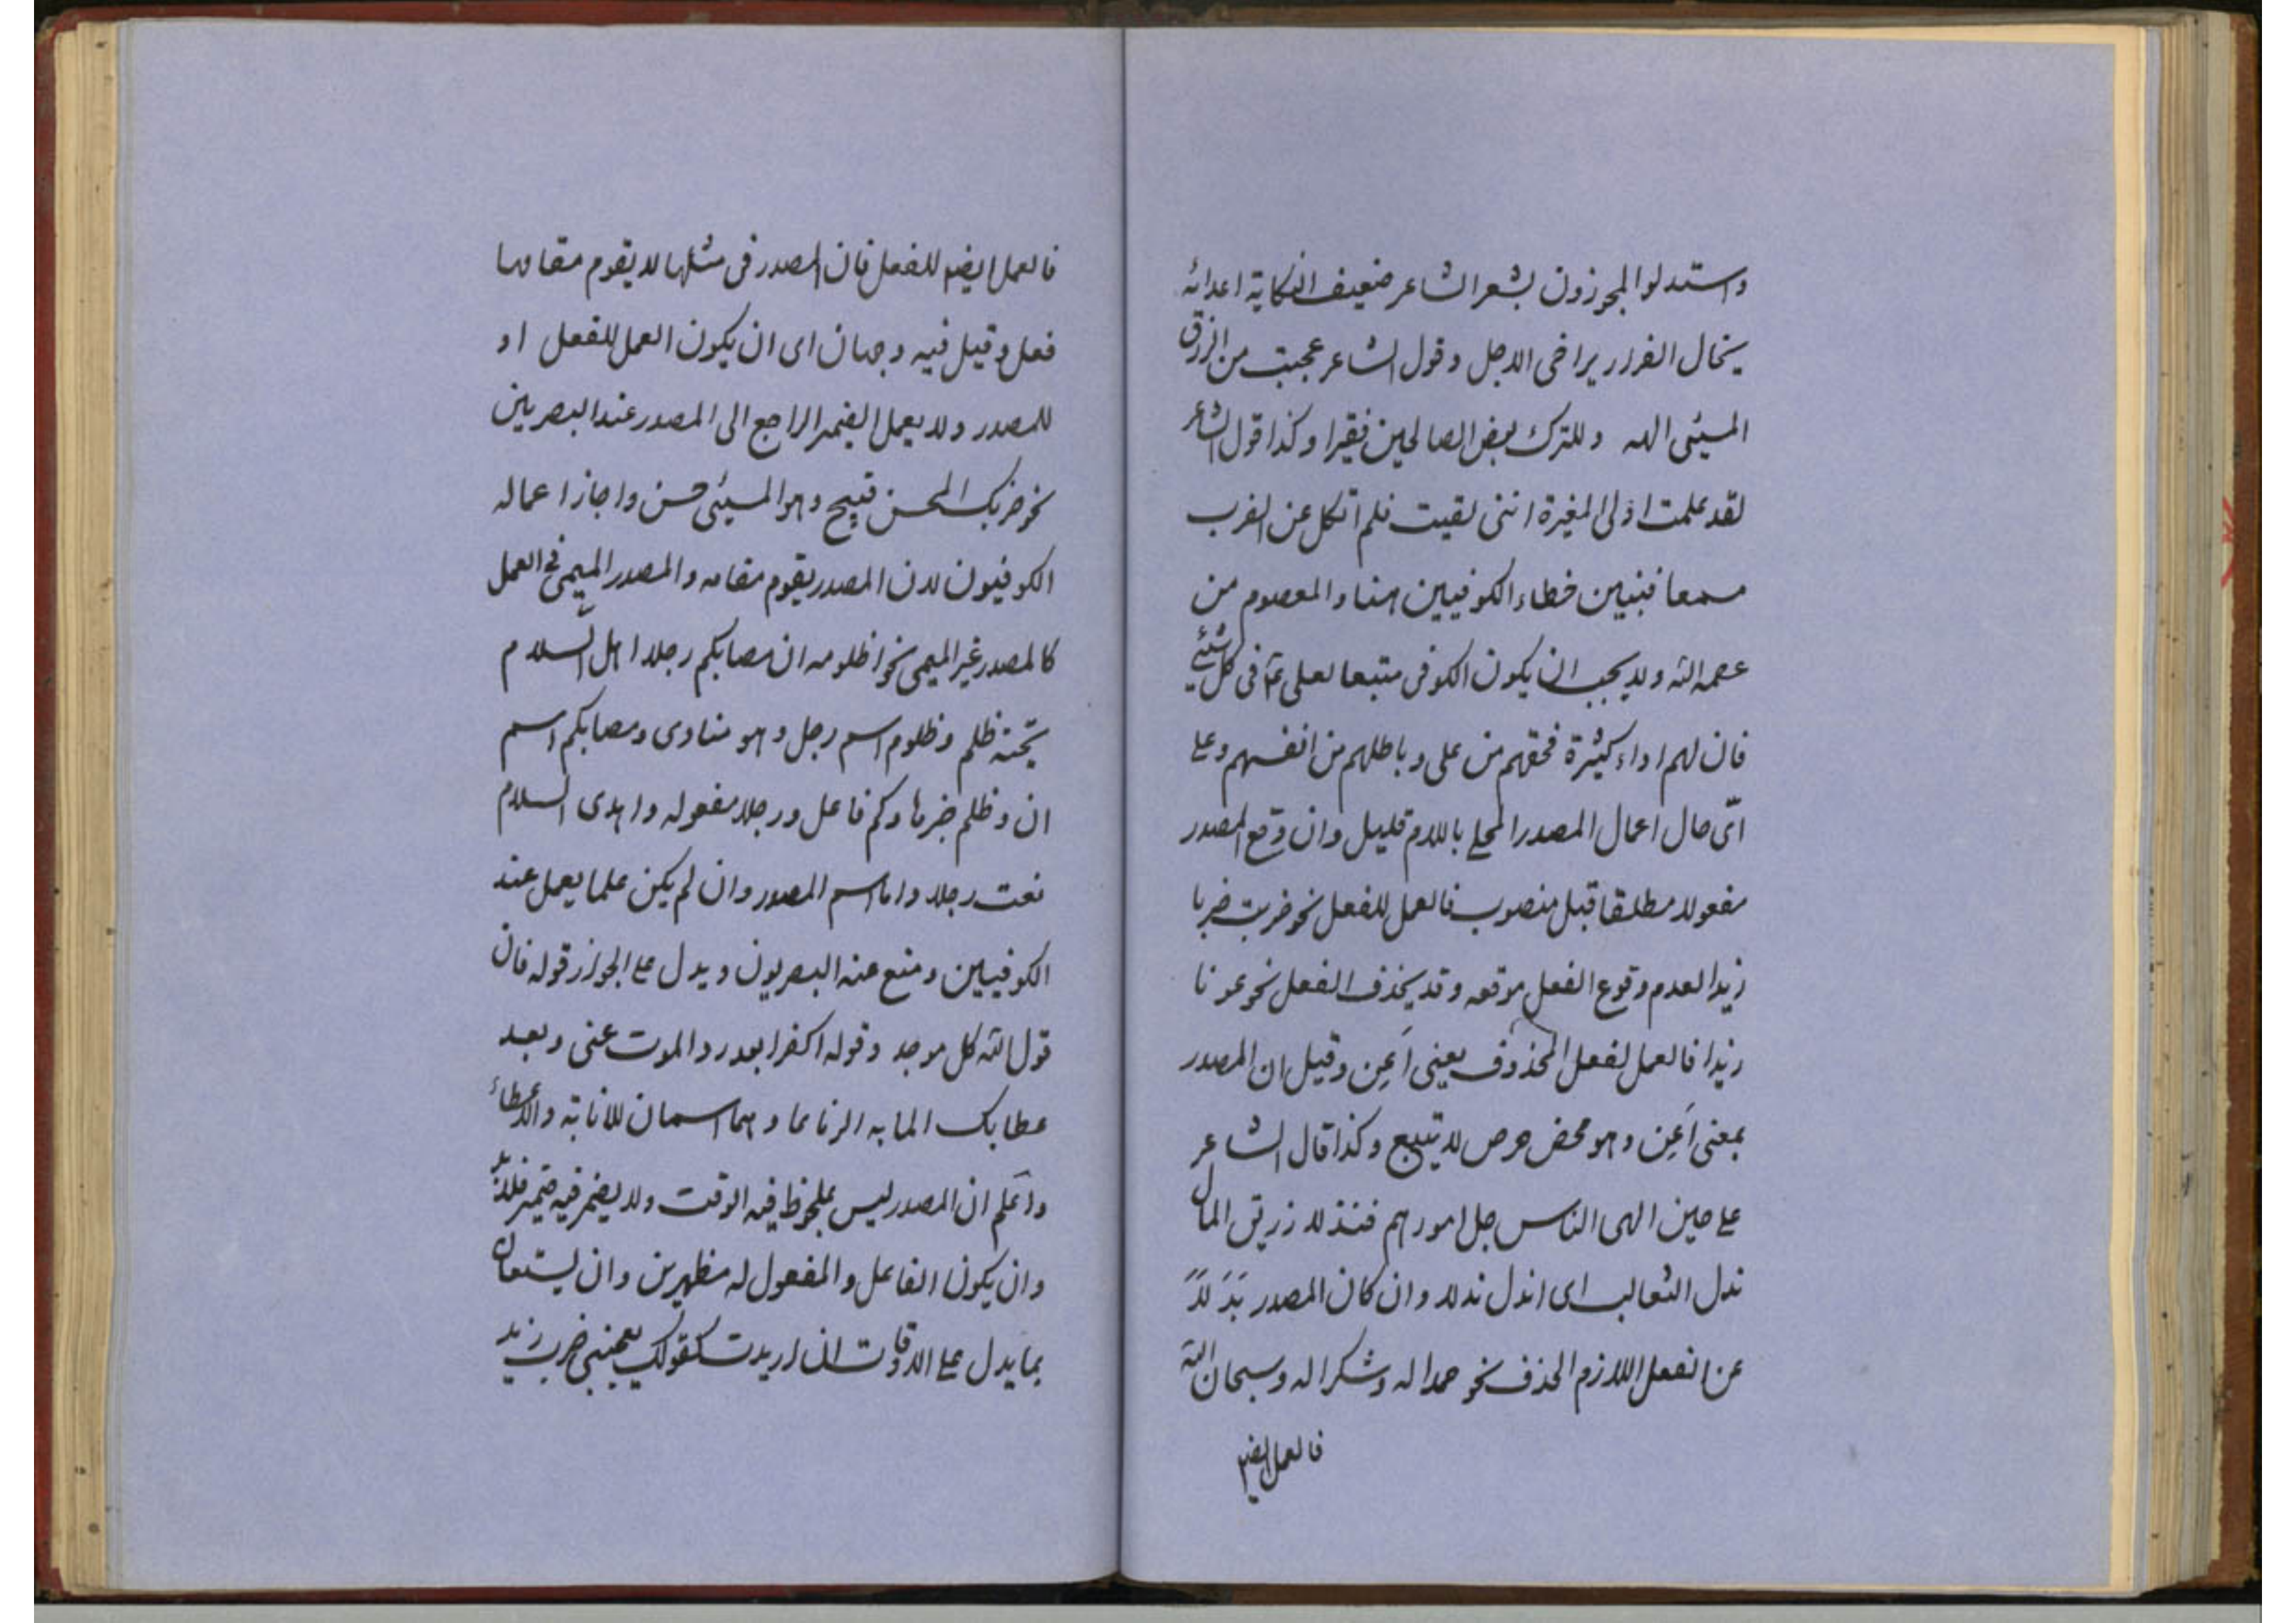 واستدلوا المجوزون بشعر الشاعر ضعيف النكاية اعدائه
يخال الفرار يراخى الاجل وقول الشاعر عجبت من الرزق
المسيئى الهه وللترك بعض الصالحين فقيرا وكذا قول الشاعر
لقد علمت اولى المغيرة اننى لقيت فلم انكل عن الضرب
مسمعا فتبين خطاء الكوفيين هنا والمعصوم من
عصمه الله ولا يجب ان يكون الكوفى متبعا لعلى فى كل شئى
فان لهم اراء كثيرة فحقهم من على وباطلهم من انفسهم وعلى
اىّ حال اعمال المصدر المحلى باللام قليل وان وقع المصدر
مفعولا مطلقا قبل منصوب فالعمل للفعل نحو ضربت ضربا
زيدا لعدم وقوع الفعل موقعه وقد يحذف الفعل نحو عونا
زيدا فالعمل لفعل المحذوف يعنى اَعِن وقيل ان المصدر
بمعنى اَعِن وهو محض حرص لا يتبع وكذا قال الشاعر
على حين الهى الناس جل امورهم فندلا زريق المال
ندل الثعالب اى اندل ندلا وان كان المصدر بَدَلَاً
عن الفعل اللازم الحذف نحو حمدا له وشكرا له وسبحان الله
فالعمل ايضا
فالعمل ايضا للفعل فان المصدر فى مثلها لا يقوم مقامها
فعل وقيل فيه وجهان اى ان يكون العمل للفعل او
للمصدر ولا يعمل الضمير الراجع الى المصدر عند البصريين
نحو ضربك المحسن قبيح وهو المسيئى حسن واجاز اعماله
الكوفيون لان المصدر يقوم مقامه والمصدر الميمى فى العمل
كالمصدر غير الميمى نحو اظلوم ان مصابكم رجلا اهل السلام
تحية ظلم وظلوم اسم رجل وهو منادى ومصابكم اسم
ان وظلم خبرها وكم فاعل ورجلا مفعوله واهدى السلام
نعت رجلا واما اسم المصدر وان لم يكن علما يعمل عند
الكوفيين ومنع عنه البصريون ويدل على الجواز قوله فان
قول الله كل موحد وقوله اكفرا بعد رد الموت عنى وبعد
عطابك المابه الرتاعا وهما اسمان للاثابة والاعطاء
واعلم ان المصدر ليس بملحوظ فيه الوقت ولا يضمر فيه ضمير فلابد
وان يكون الفاعل والمفعول له مظهرين وان يستعان
بما يدل على الاوقات ان اريدت كقولك يعجبنى ضرب زيد